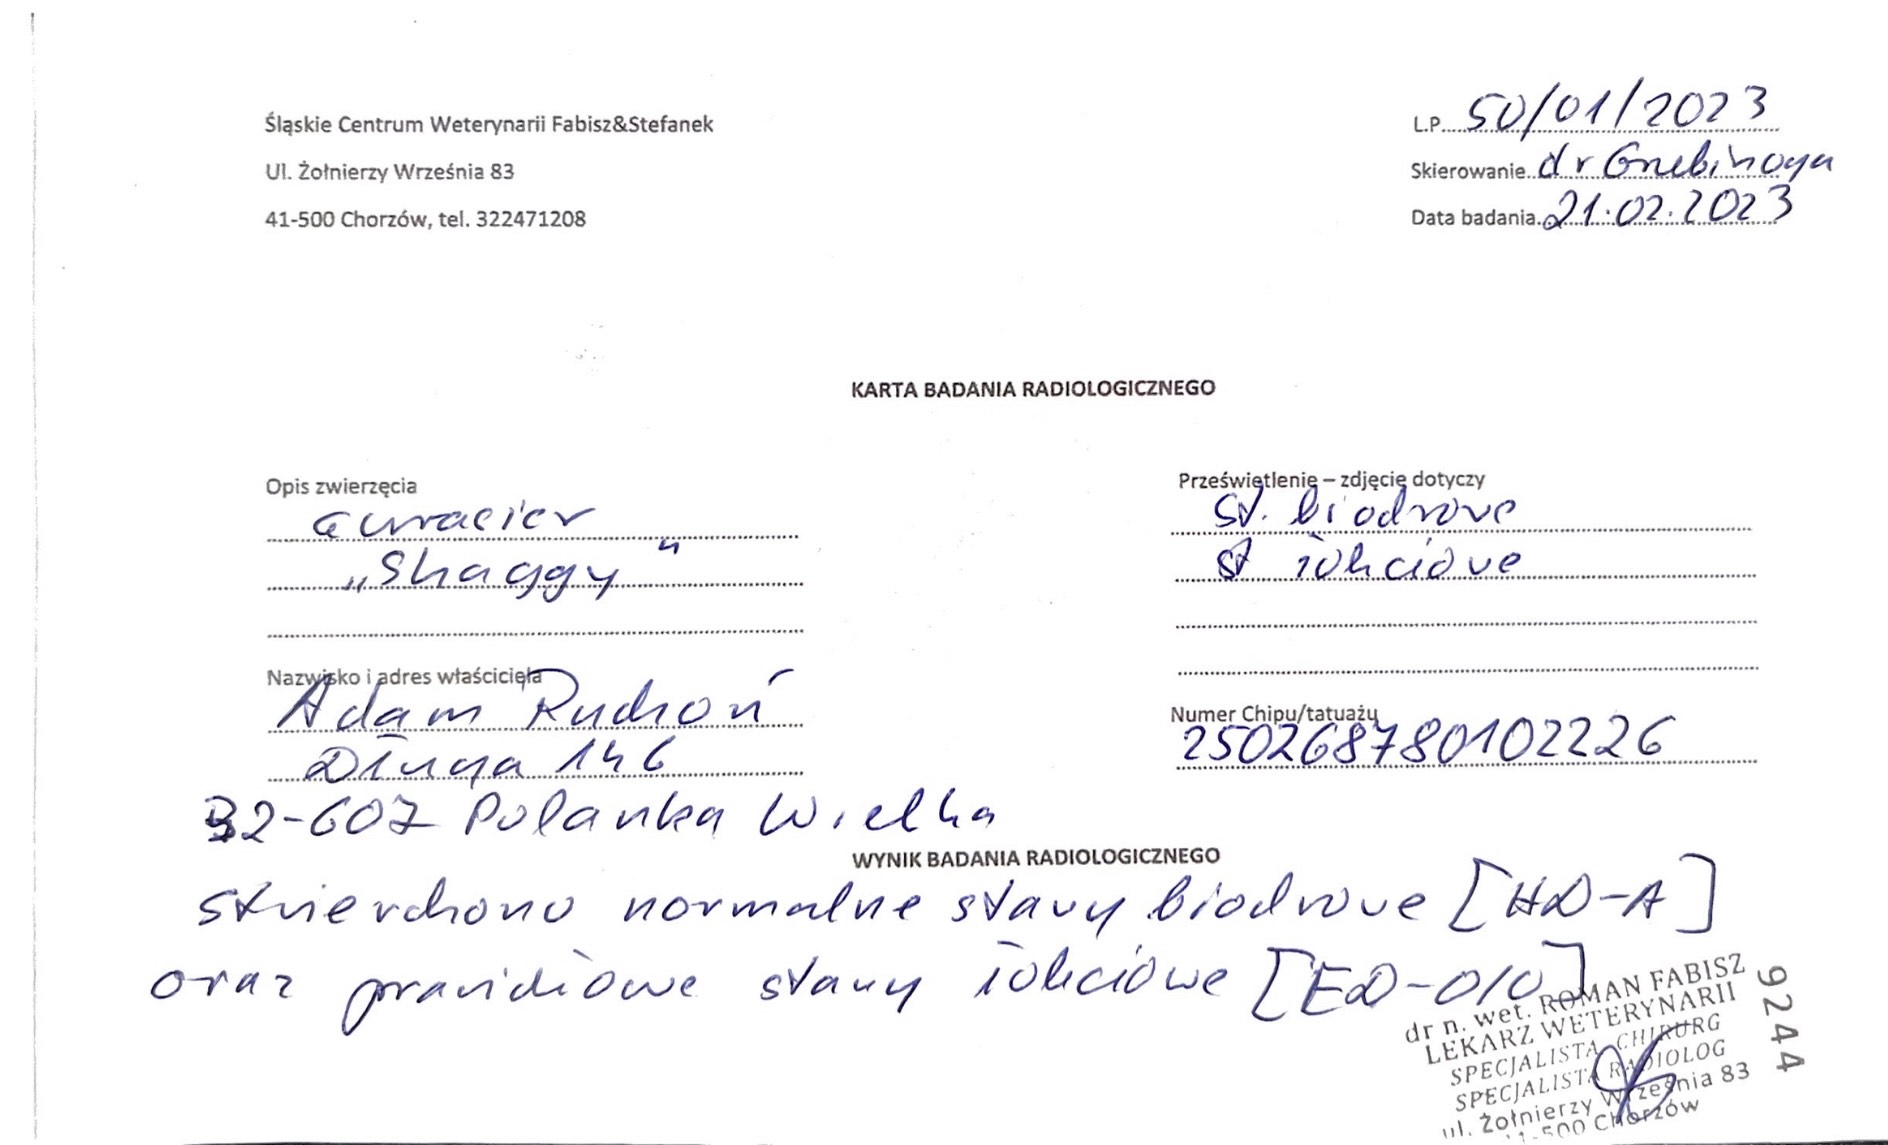 Śląskie Centrum Weterynarii Fabisz&Stefanek
Ul. Żołnierzy Września 83
41-500 Chorzów, tel. 322471208
L.P. 50/01/2023
Skierowanie dr
Data badania 21.02.2023
KARTA BADANIA RADIOLOGICZNEGO
Opis zwierzęcia
„Shaggy"
Nazwisko i adres właściciela
Adam
Długa 146
32-607 Polanka Wielka
Prześwietlenie – zdjęcie dotyczy
st. biodrowe
st łokciowe
Numer Chipu/tatuażu
250268780102226
WYNIK BADANIA RADIOLOGICZNEGO
stwierdzono normalne stawy biodrowe [HD-A]
oraz prawidłowe stawy łokciowe [ED-0/0]
dr n. wet. ROMAN FABISZ
LEKARZ WETERYNARII
SPECJALISTA CHIRURG
SPECJALISTA RADIOLOG
ul. Żołnierzy Września 83
41-500 Chorzów
9244